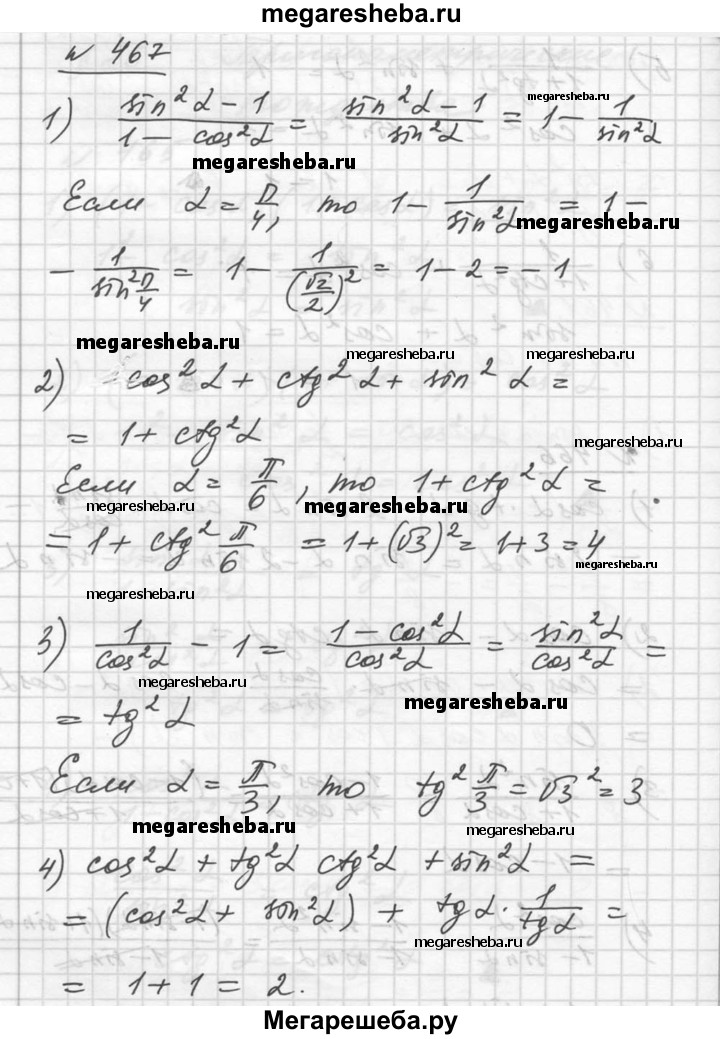 megaresheba.ru
№ 467
1) (sin²α − 1)/(1 − cos²α) = (sin²α − 1)/(sin²α) = 1 − 1/(sin²α)
megaresheba.ru
megaresheba.ru
Если α = π/4, то 1 − 1/(sin²α) = 1 −
megaresheba.ru
− 1/(sin² π/4) = 1 − 1/(√2/2)² = 1 − 2 = − 1
megaresheba.ru megaresheba.ru megaresheba.ru
2) cos²α + ctg²α + sin²α =
= 1 + ctg²α
megaresheba.ru
Если α = π/6, то 1 + ctg²α =
megaresheba.ru megaresheba.ru
= 1 + ctg² π/6 = 1 + (√3)² = 1 + 3 = 4
megaresheba.ru
megaresheba.ru
3) 1/(cos²α) − 1 = (1 − cos²α)/(cos²α) = (sin²α)/(cos²α) =
megaresheba.ru
= tg²α
megaresheba.ru
Если α = π/3, то tg² π/3 = √3² = 3
megaresheba.ru megaresheba.ru
4) cos²α + tg²α ctg²α + sin²α =
= (cos²α + sin²α) + tgα · 1/(tgα) =
megaresheba.ru
= 1 + 1 = 2.
Мегарешеба.ру